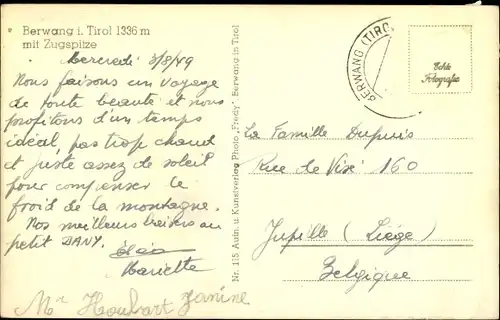 Berwang i. Tirol 1336 m
mit Zugspitze
Mercredi 3/8/49
Nous faisons un voyage
de toute beauté et nous
profitons d'un temps
idéal, pas trop chaud
et juste assez de soleil
pour compenser le
froid de la montagne.
Nos meilleurs baisers au
petit DANY.
Mariette
Mr Houbart Janine
Nr. 115 Aufn. u. Kunstverlag Photo „Fredy" Berwang in Tirol
BERWANG (TIROL
Echte
Fotografie
La Famille Dupuis
Rue de Visé 160
Jupille (Liège)
Belgique